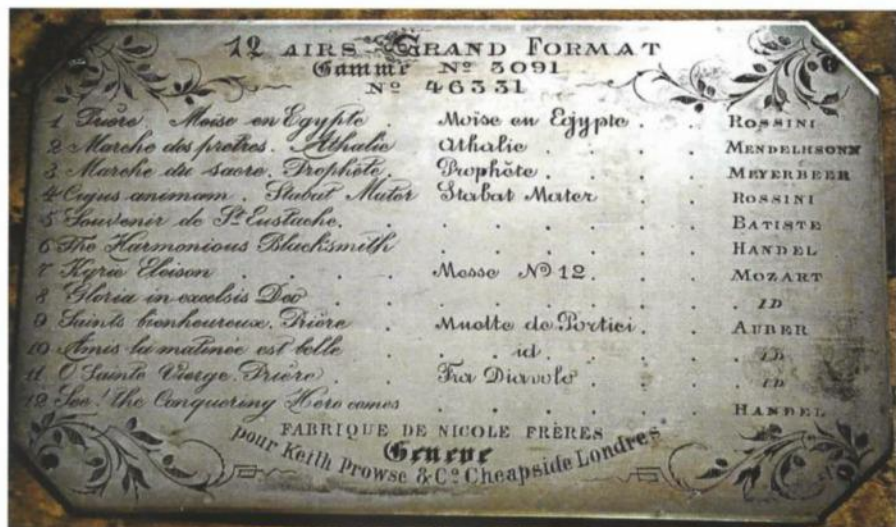 12 AIRS GRAND FORMAT
Gamme Nº 3091
Nº 46331
1 Prière. Moise en Egypte . Moïse en Egypte . . . ROSSINI
2 Marche des prêtres. Athalie Athalie . . . . . MENDELHSONN
3 Marche du sacre. Prophète. Prophète . . . . . MEYERBEER
4 Cujus animam. Stabat Mater Stabat Mater . . . ROSSINI
5 Souvenir de St Eustache. . . . . . . . BATISTE
6 The Harmonious Blacksmith . . . . . . HANDEL
7 Kyrie Eleison . . . . . Messe Nº 12 . . . MOZART
8 Gloria in excelsis Deo . . . . . . . . ID
9 Saints bienheureux. Prière Muette de Portici . . AUBER
10 Amis la matinée est belle . . id . . . . ID
11 O Sainte Vierge. Prière . . Fra Diavolo . . . . ID
12 See! the Conquering Hero comes . . . . . . HANDEL
FABRIQUE DE NICOLE FRÈRES
Geneve
pour Keith Prowse & Co Cheapside Londres